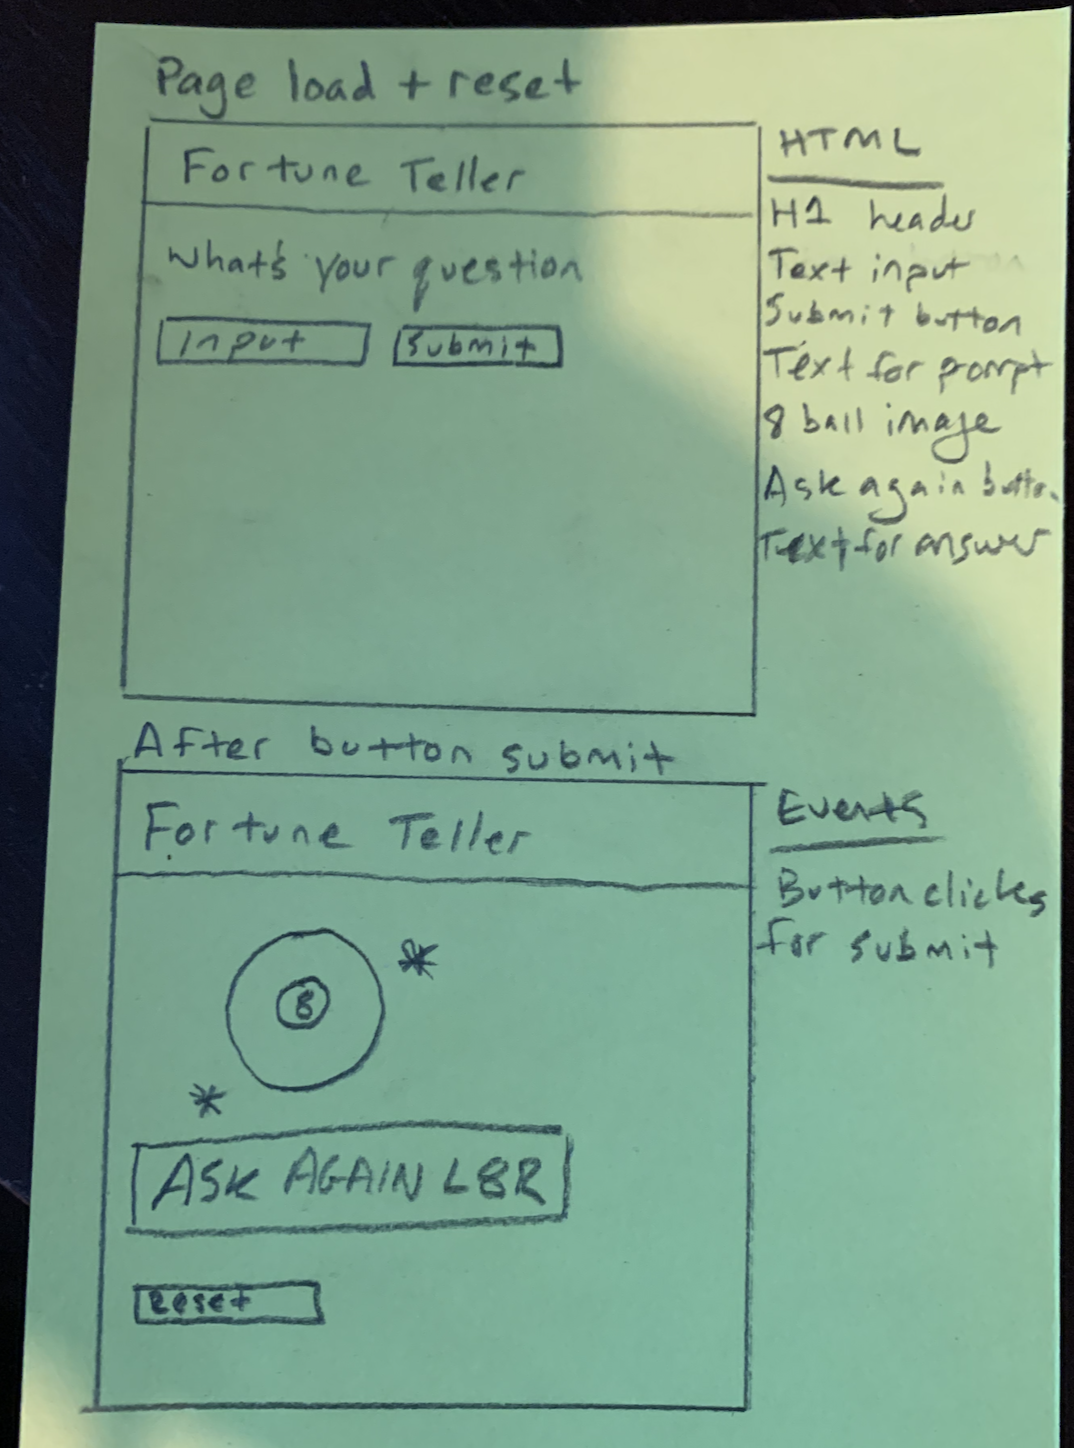 Page load + reset
Fortune Teller
What's your question
Input
Submit
HTML
H1 header
Text input
Submit button
Text for pormpt
8 ball image
Ask again button
Text for answer
After button submit
Fortune Teller
8
ASK AGAIN L8R
Reset
Events
Button clicks
for submit